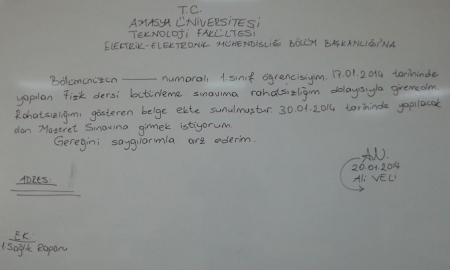 T.C.
AMASYA ÜNİVERSİTESİ
TEKNOLOJİ FAKÜLTESİ
ELEKTRİK-ELEKTRONİK MÜHENDİSLİĞİ BÖLÜM BAŞKANLIĞI'NA
Bölümünüzün numaralı 1.sınıf öğrencisiyim. 17.01.2014 tarihinde
yapılan Fizik dersi bütünleme sınavına rahatsızlığım dolayısıyla giremedim.
Rahatsızlığımı gösteren belge ekte sunulmuştur. 30.01.2014 tarihinde yapılacak
olan Mazeret Sınavına girmek istiyorum.
Gereğini saygılarımla arz ederim.
20.01.2014
Ali VELİ
ADRES:
EK:
1.Sağlık Raporu